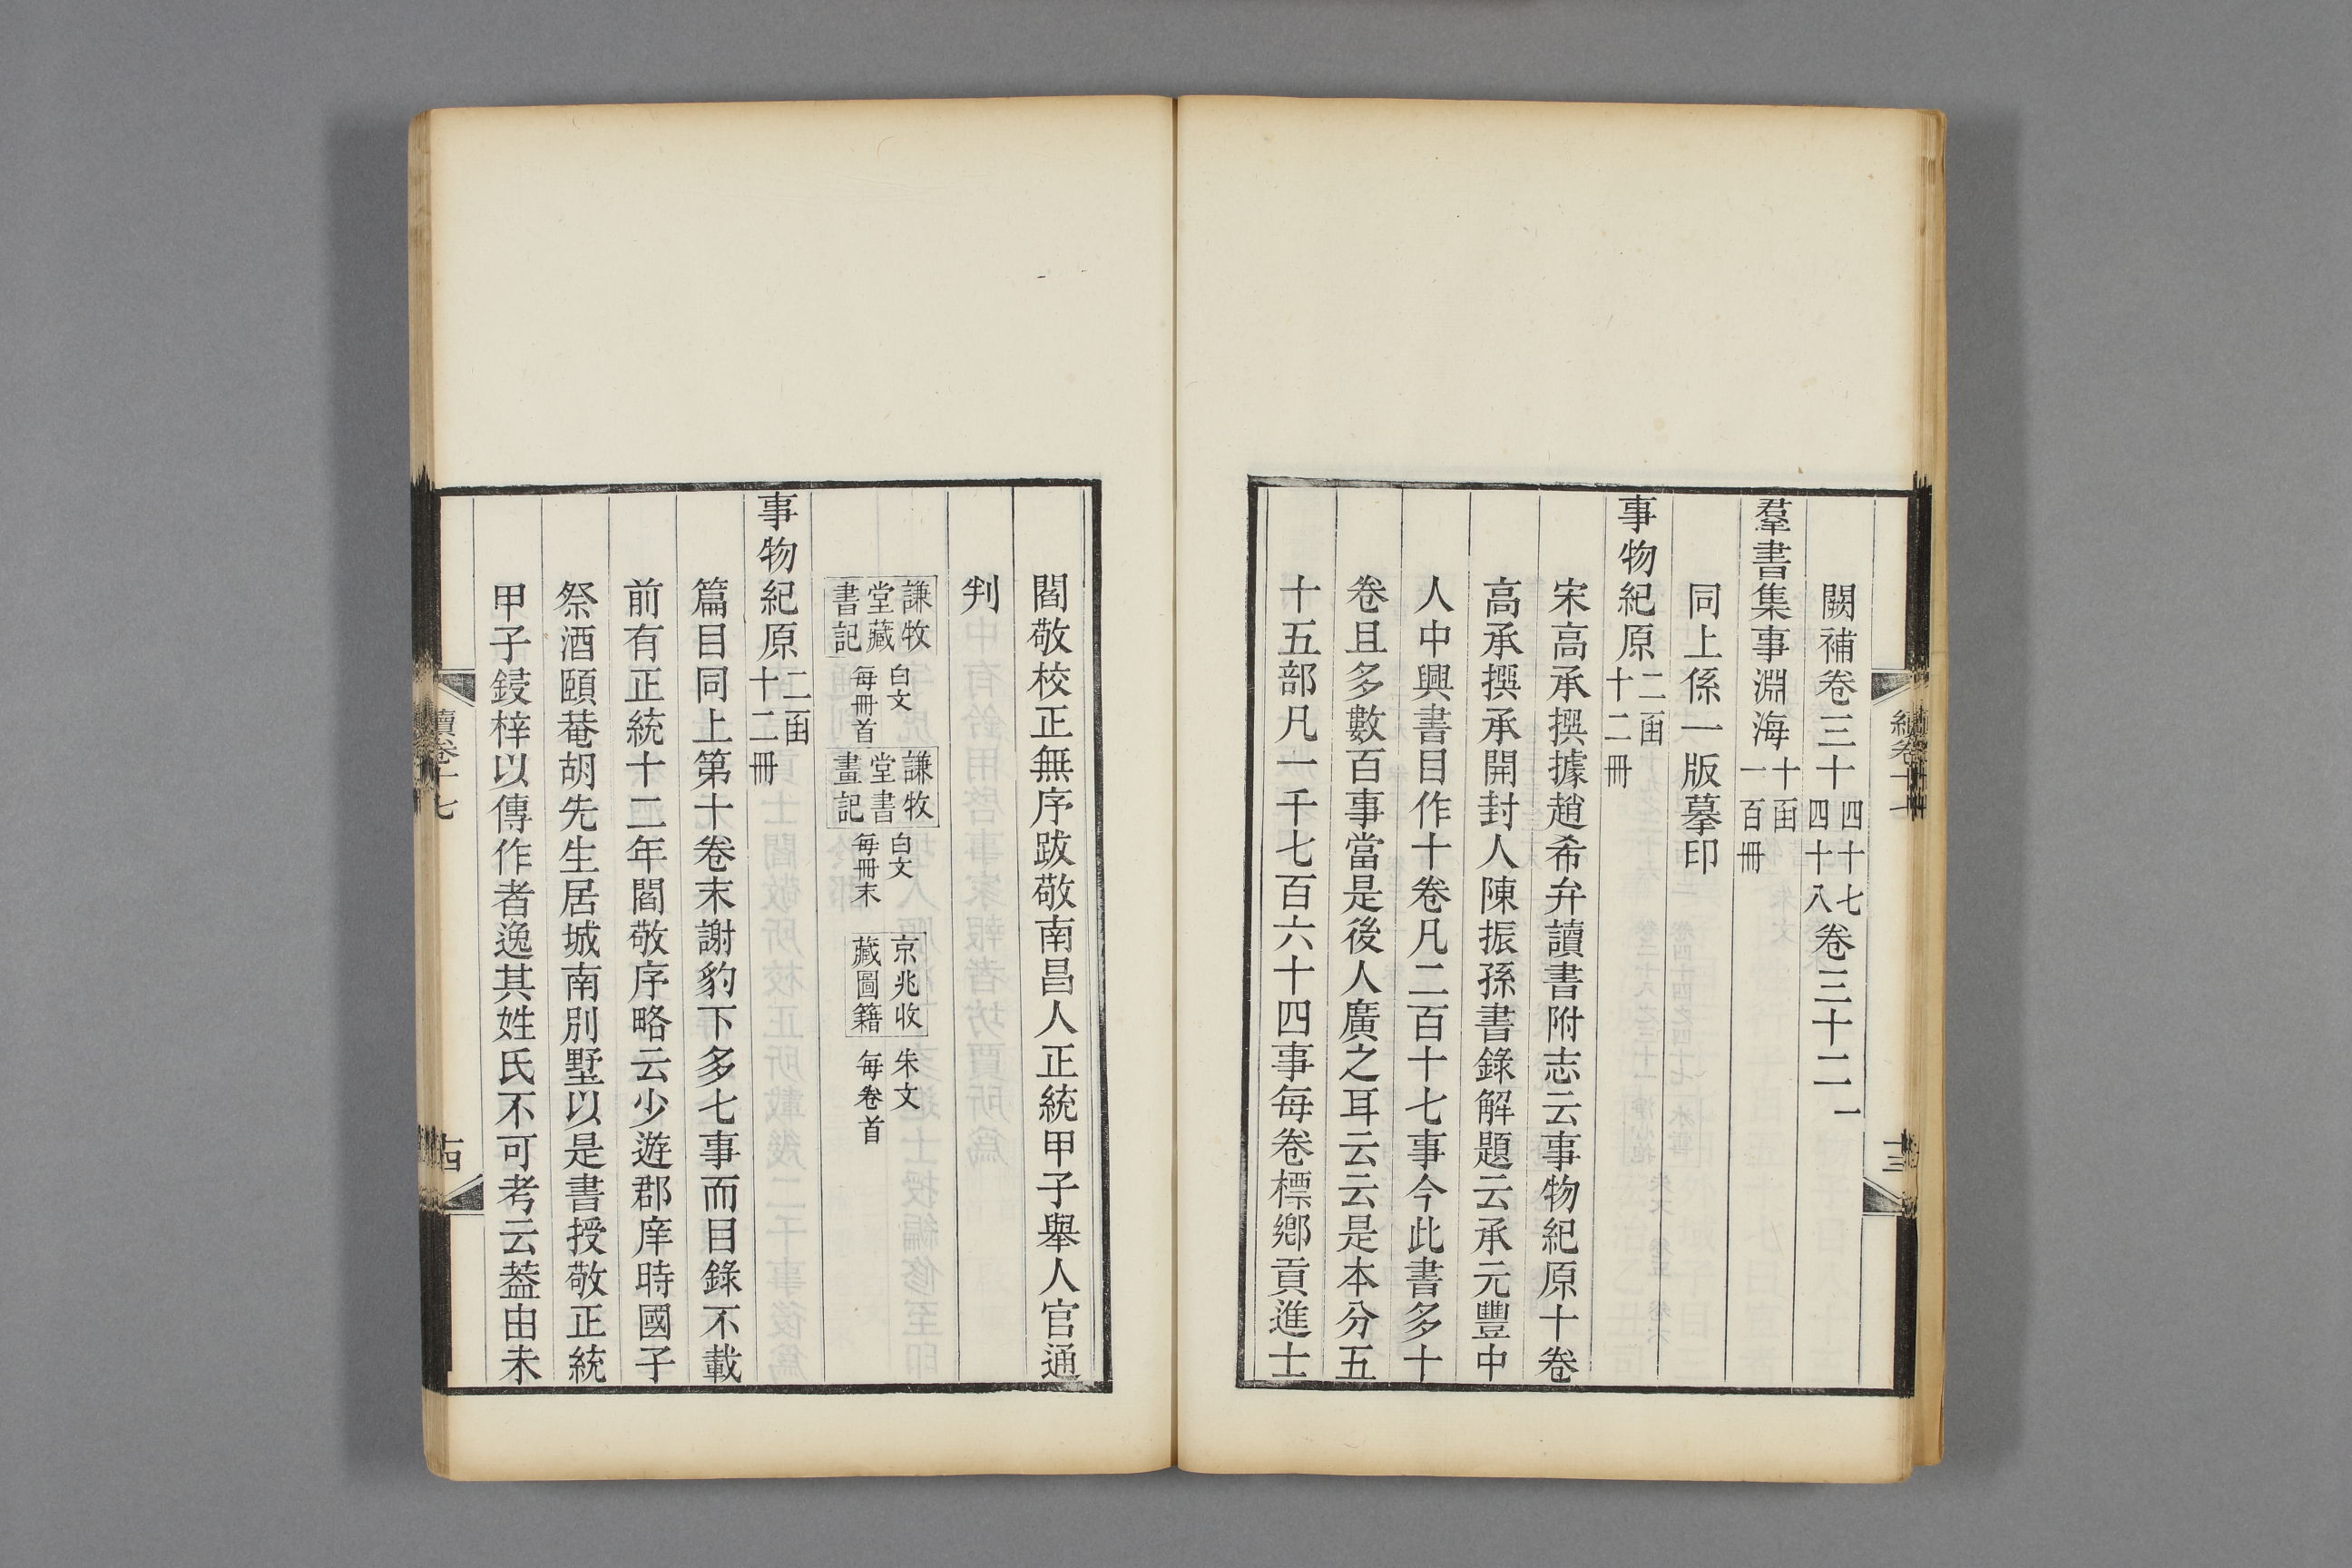 闕補卷三十四十七四十八卷三十二一
羣書集事淵海十函一百冊
同上係一版摹印
事物紀原二函十二冊
宋高承撰據趙希弁讀書附志云事物紀原十卷
高承撰承開封人陳振孫書錄解題云承元豐中
人中興書目作十卷凡二百十七事今此書多十
卷且多數百事當是後人廣之耳云云是本分五
十五部凡一千七百六十四事每卷標鄉貢進士
閻敬校正無序跋敬南昌人正統甲子舉人官通
判
謙牧堂藏書記白文每冊首 謙牧堂書畫記白文每冊末 京兆收藏圖籍朱文每卷首
事物紀原二函十二冊
篇目同上第十卷末謝豹下多七事而目錄不載
前有正統十二年閻敬序略云少遊郡庠時國子
祭酒頤菴胡先生居城南別墅以是書授敬正統
甲子鋟梓以傳作者逸其姓氏不可考云葢由未
續卷十七
十四